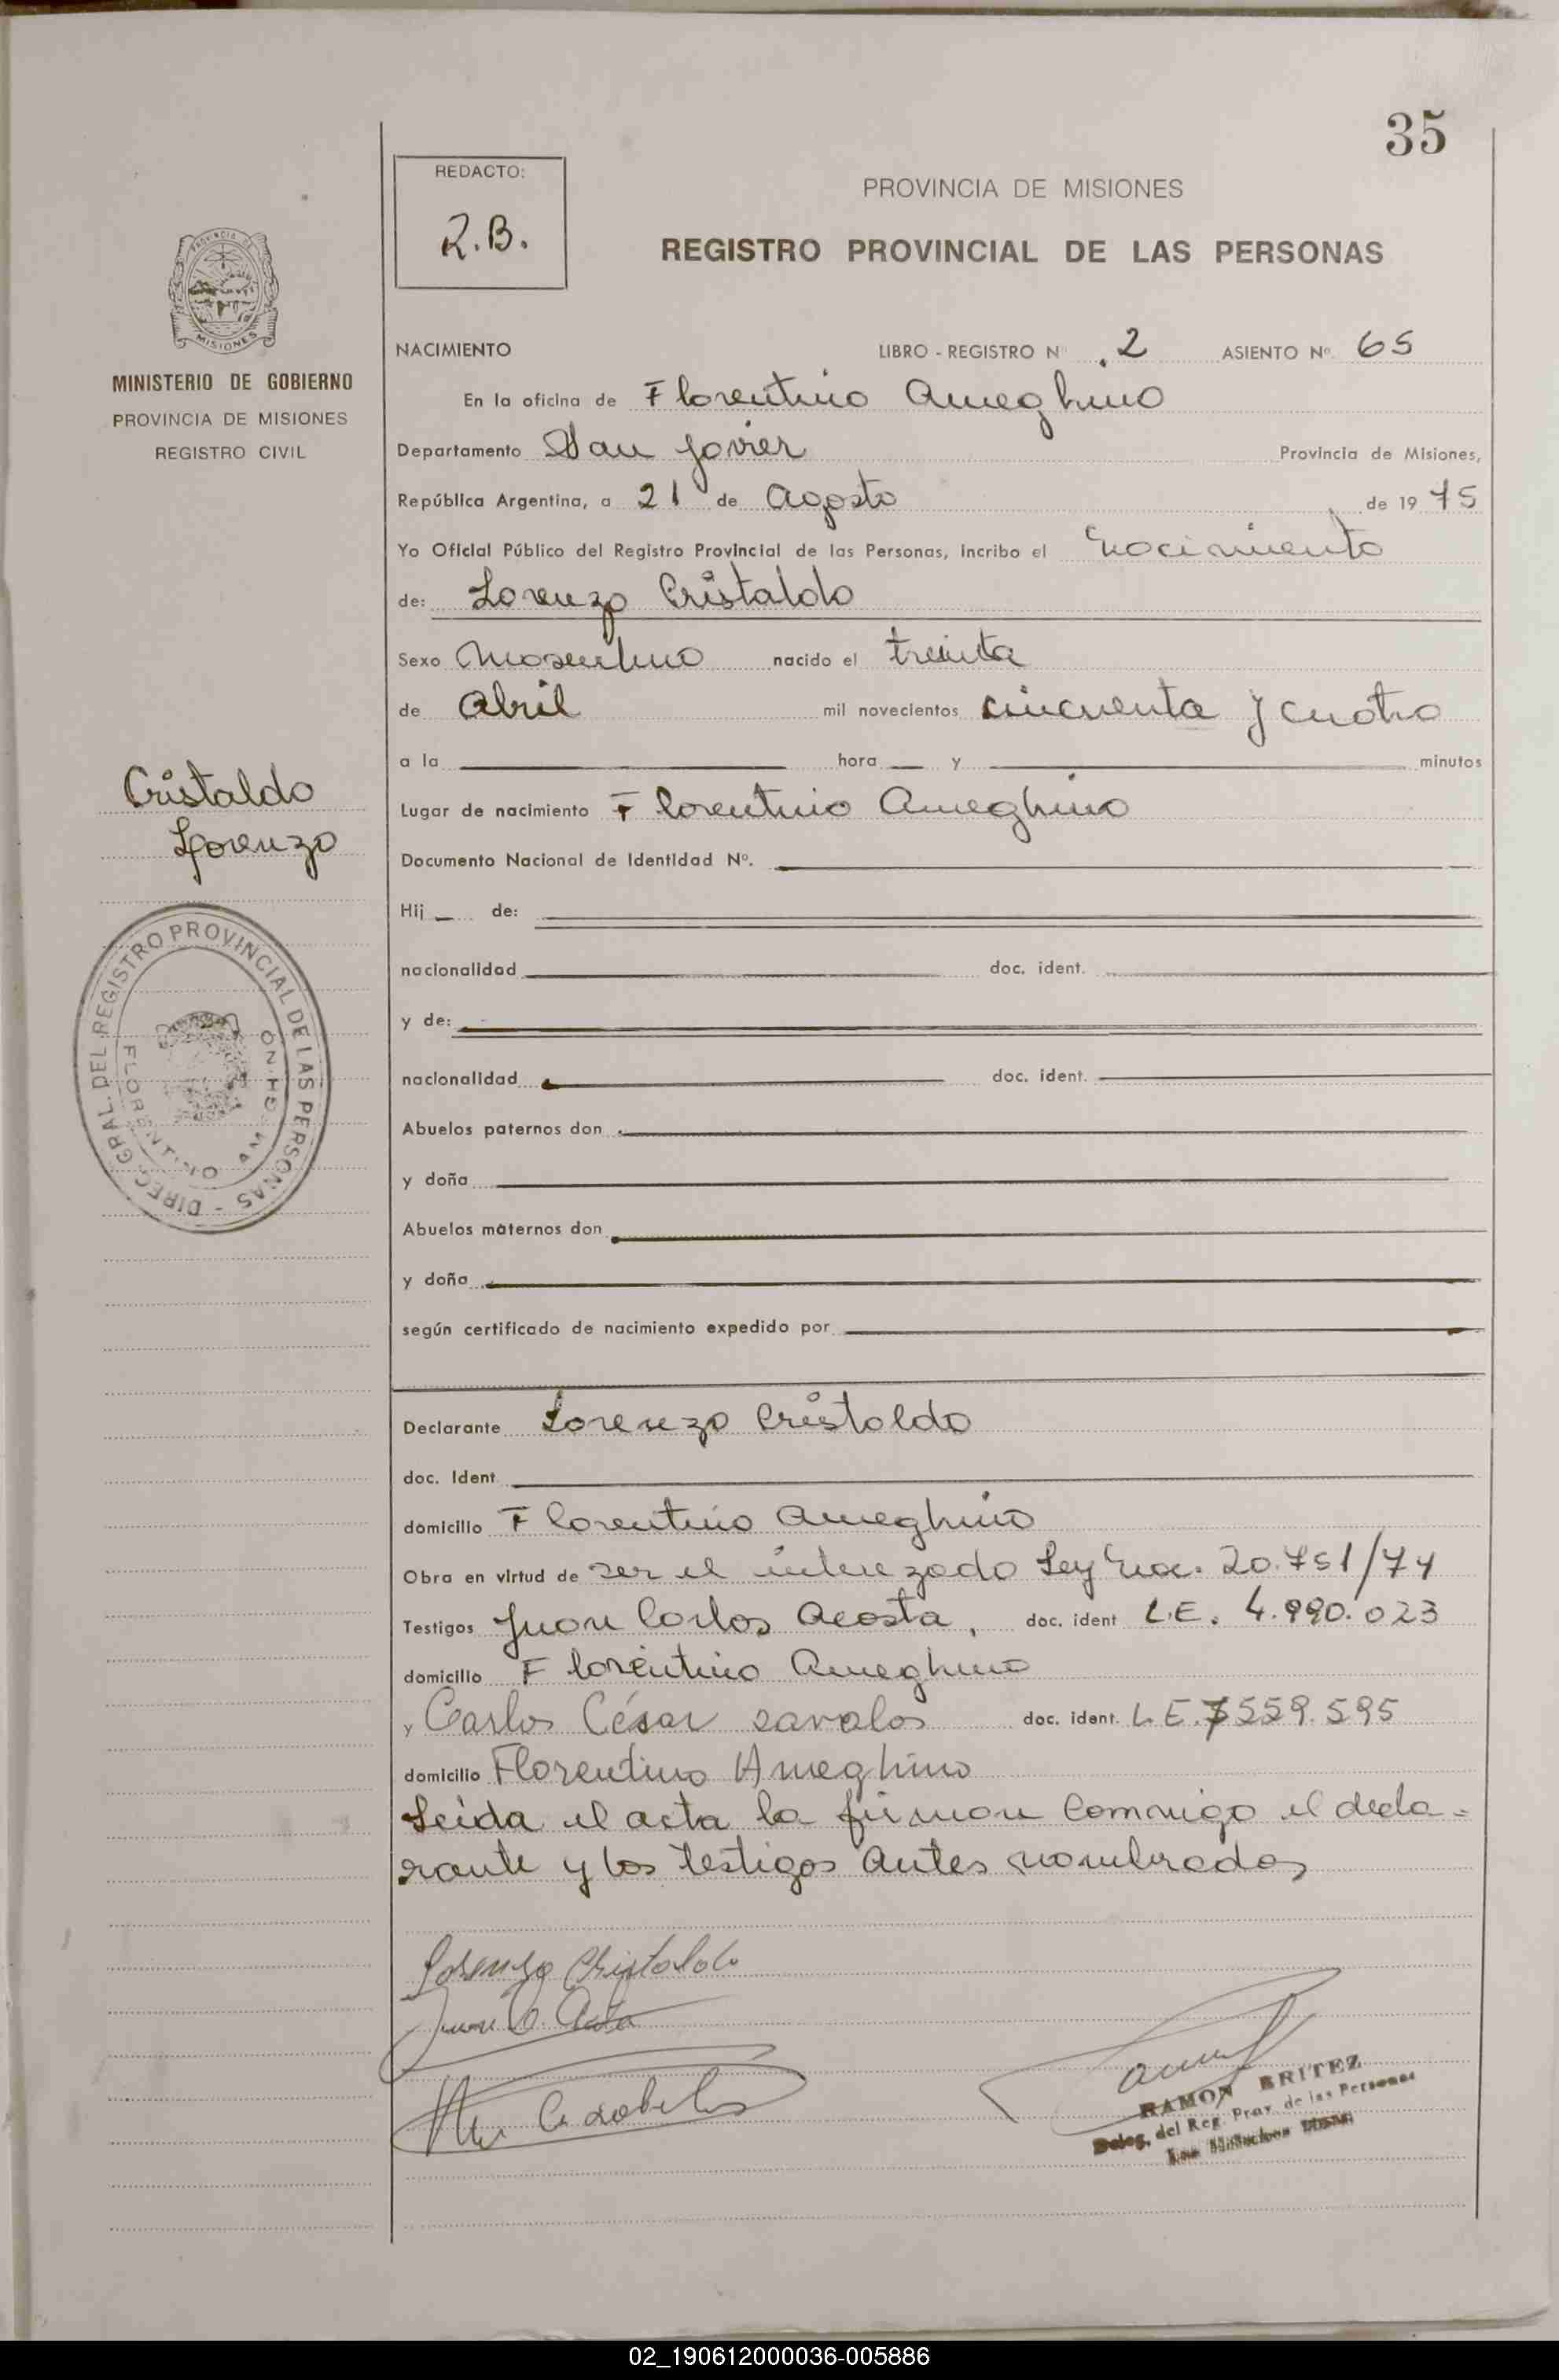 35
REDACTO:
R.B.
PROVINCIA DE MISIONES
REGISTRO PROVINCIAL DE LAS PERSONAS
PROVINCIA DE
MISIONES
MINISTERIO DE GOBIERNO
PROVINCIA DE MISIONES
REGISTRO CIVIL
NACIMIENTO LIBRO - REGISTRO Nº 2 ASIENTO Nº 65
En la oficina de Florentino Ameghino
Departamento San Javier Provincia de Misiones,
República Argentina, a 21 de Agosto de 19 75
Yo Oficial Público del Registro Provincial de las Personas, incribo el nacimiento
de: Lorenzo Cristaldo
Sexo Masculino nacido el treinta
de Abril mil novecientos cincuenta y cuatro
a la hora y minutos
Cristaldo
Lorenzo
Lugar de nacimiento Florentino Ameghino
Documento Nacional de Identidad Nº.
Hij de:
nacionalidad doc. ident.
y de:
nacionalidad doc. ident.
DIREC. GRAL. DEL REGISTRO PROVINCIAL DE LAS PERSONAS -
FLORENTINO AMEGHINO
Abuelos paternos don
y doña
Abuelos maternos don
y doña
según certificado de nacimiento expedido por
Declarante Lorenzo Cristaldo
doc. Ident.
domicilio Florentino Ameghino
Obra en virtud de ser el interezado Ley Nac. 20.751/74
Testigos Juan Carlos Acosta, doc. ident L.E. 4.990.023
domicilio Florentino Ameghino
y Carlos César zavalos doc. ident. L.E. 7559.595
domicilio Florentino Ameghino
Leida el acta la firman Commigo el decla=
rante y los testigos antes nombrados
Lorenzo Cristaldo
RAMON BRITEZ
Deleg. del Reg. Prov. de las Personas
02_190612000036-005886